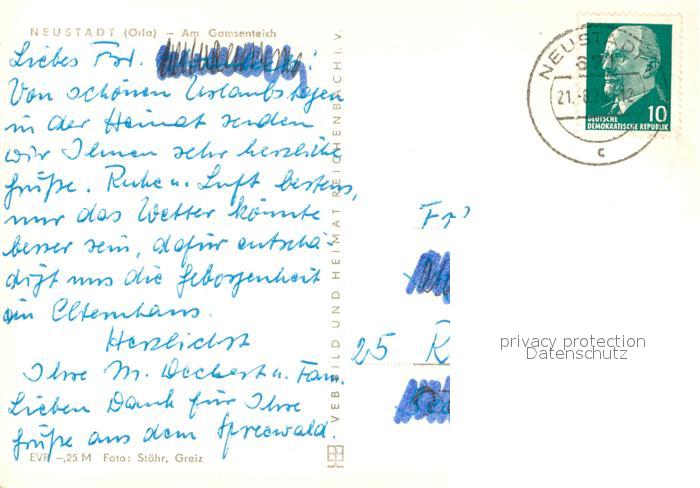 NEUSTADT (Orla) – Am Gamsenteich
Liebes Frl.
Von schönen Urlaubstagen
in der Heimat senden
wir Ihnen sehr herzliche
Grüße. Ruhe u. Luft bestens,
nur das Wetter könnte
besser sein, dafür entschä-
digt uns die Geborgenheit
im Elternhaus.
Herzlichst
Ihre M. Deckert u. Fam.
Lieben Dank für Ihre
Grüße aus dem Spreewald.
EVP –,25 M Foto: Stöhr, Greiz
VEB BILD UND HEIMAT REICHENBACH I. V.
NEUSTADT
21.
c
10
DEUTSCHE
DEMOKRATISCHE REPUBLIK
Fr
25 R
privacy protection
Datenschutz